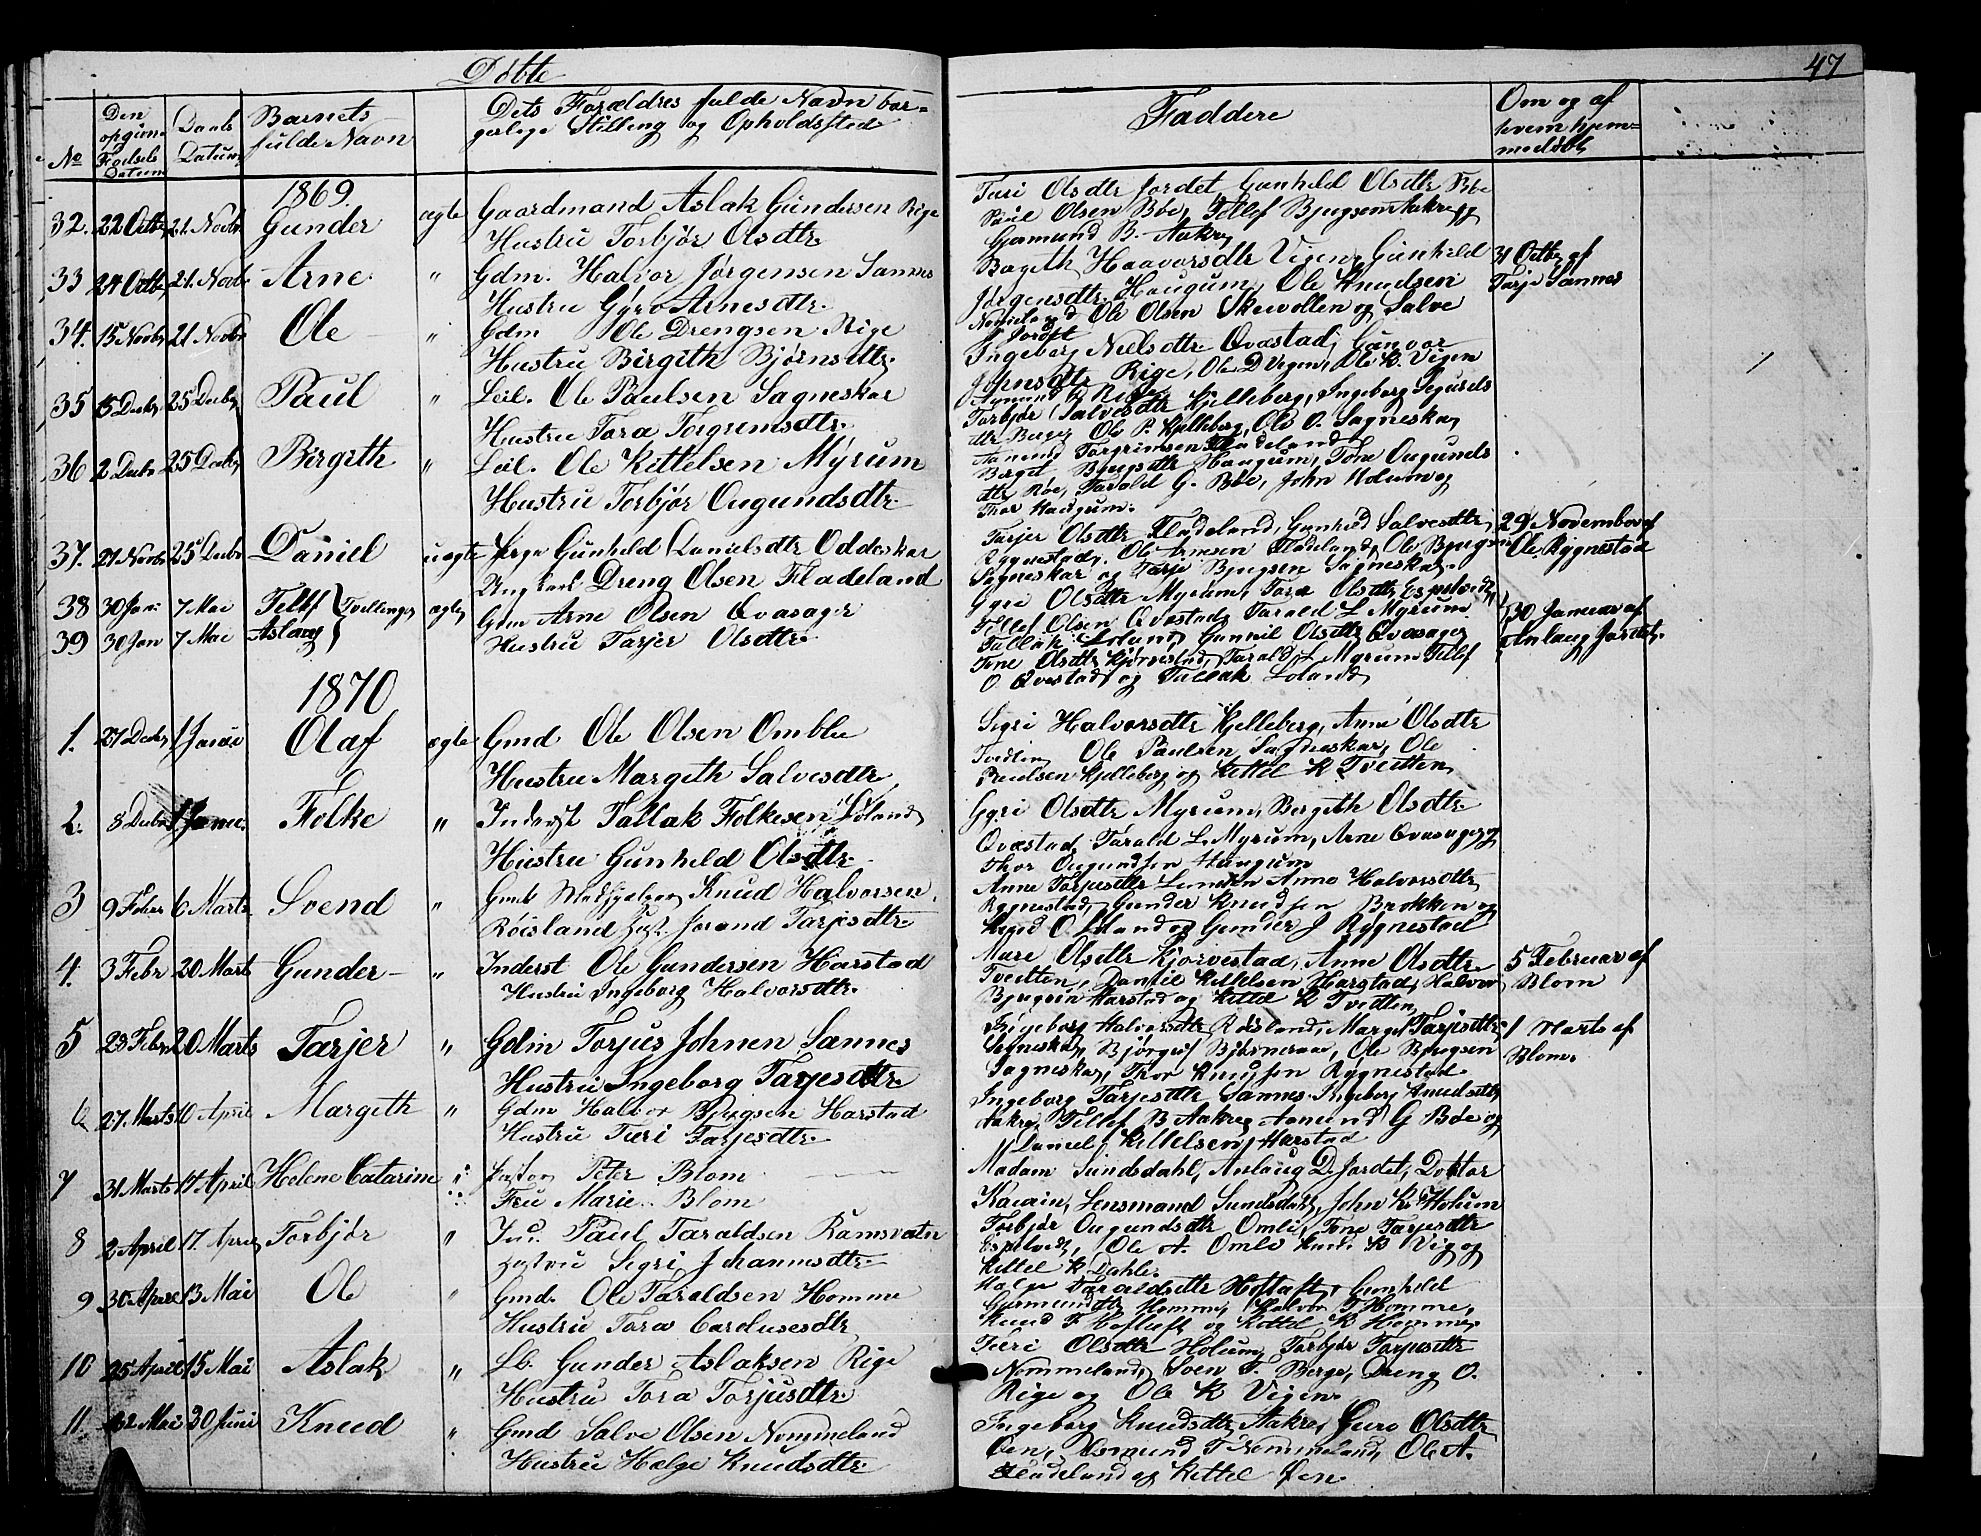 Døbte
47
No
Den opgivne Fødsels Datum
Daabs Datum
Barnets fulde Navn
Dets Forældres fulde Navn bor=
gerlige Stilling og Opholdssted
Faddere
Om og af hvem hjem=
medøbt
1869.
32. 22 Octbr 21. Novbr Gunder ægte Gaardmand Aslak Gundersen Rige
Hustru Torbjør Olsdtr.
Turi Olsdtr Jordet, Gunhild Olsdtr Bøe
Paul Olsen Bøe, Tellef Bjugsen Aakre og
Gjermund B. Aakre
33 24 Octbr 21. Novbr Arne " Gdm. Halvor Jørgensen Sannes
Hustru Gyro Arnesdtr.
Bægith Haavorsdtr Vigen, Gunhild
Jørgensdtr Haugum, Ole Knudsen
Nomeland Ole Olsen Skevollen og Salve
Jordet
31 Octbr af
Tarje Sannes
34. 15 Novbr 21 Novbr Ole " Gdm Ole Drengsen Rige
Hustru Birgith Bjørnsdtr.
Ingeborg Nielsdtr Qvæstad, Gunvor
Johnsdtr Rige, Ole D Vigen, Ole K. Vigen
35 15 Decbr 25 Decbr Paul " Leil. Ole Paulsen Sagneskar
Hustru Tora Torgrimsdtr.
Torbjør Salvesdtr Kjelleberg, Ingeborg
dtr Berget Ole P. Kjelleberg, Ole O. Sagneskar
Aanund Torgrimsen Fladeland
36 2 Decbr 25 Decbr Birgith " Leil. Ole Kittelsen Myrum
Hustru Torbjør Ougundsdtr.
Berget Bjugsdtr Haugum, Tone Ougunds
dtr Bøe, Tarald G. Bøe, John Holum og
Thor Haugum.
37. 21 Novbr 25 Decbr Daniel uægte Pige Gunhild Danielsdtr Oddeskar
Ungkarl Dreng Olsen Fladeland
Tarjer Olsdtr Fladeland, Gunhild Salvesdtr
Rygnestad, Ole Arnesen Fladeland, Ole Bjugsen
Sagneskar og Tarje Bjugsen Sagneskar.
29 November af
Ole Rygnestad
38 30 Jan 7 Mai Tellef Tvillinger ægte Gdm Arne Olsen Qvasager
39 30 Jan 7 Mai Aslaug Hustru Tarjer Olsdtr.
Gyri Olsdtr Myrum, Tora Olsdtr Espetveidt
Tellef Olsen Qvæstad, Tarald L Myrum
Tallak Loland, Gunnil Olsdtr Qvasager
Tone Olsdtr Kjørvestad, Tarald L Myrum Tellef
O. Qvestad og Tallak Loland
30 Januar af
Anlaug Jordet.
1870
1. 27 Decbr 1 Janu Olaf ægte Gmd Ole Olsen Omblie
Hustru Margith Salvesdtr
Sigri Halvorsdtr Kjelleberg, Anne Olsdtr
Tveitten Ole Paulsen Sagneskar, Ole
Paulsen Kjelleberg og Kittel K Tveitten
2. 8 Decbr 1 Janu. Folke " Inderst Tallak Folkesen Loland
Hustru Gunhild Olsdtr.
Gyri Olsdtr Myrum, Bergith Olsdtr.
Qvæstad, Tarald L. Myrum, Arne Qvasager og
Thor Ougundsen Haugum
3 9 Febr 6 Marts Svend " Gmd Medhjelper Knud Halvorsen
Røisland Hust. Jorand Tarjesdtr
Anne Tarjesdtr Lunden Anne Halvorsdtr
Rygnestad, Gunder Knudsen Brokken og
Knud O. Loland og Gunder J Rygnestad
4. 3 Febr 20 Marts Gunder " Inderst Ole Gundersen Harstad
Hustru Ingeborg Halvorsdtr.
Mare Olsdtr Kjørvestad, Anne Olsdtr
Tveitten, Daniel Kittelsen Harstad, Halvor
Bjugsen Harstad og Kittel K Tveitten
5 Februar af
Blom
5 23 Febr 20 Marts Tarjer " Gdm Torjus Johnen Sannes
Hustru Ingeborg Tarjesdtr.
Ingeborg Halvorsdtr Røisland, Marget Tarjesdtr
Sagneskar, Bjørguf Bjørnaraa, Ole Bjugsen
Sagneskar, Thor Knudsen Rygnestad.
1 Marts af
Blom.
6 27. Marts 10 April Margith " Gdm Halvor Bjugsen Harstad
Hustru Turi Tarjesdtr.
Ingeborg Tarjesdtr Sannes Ingeborg Knudsdtr
Aakre, Tellef B Aakre, Aamund G Bøe og
Daniel Kittelsen Harstad
7 31 Marts 17 April Helene Catarine Pastor Peter Blom
Fru Marie Blom
Madam Sundsdahl, Anlaug D. Jordet, Doktor
Kavain, Lensmand Sundsdahl, John K. Holum
8 2 April 17. April Torbjør " Ind. Paul Taraldsen Ramsvatn
Hustru Sigri Johannesdtr.
Torbjør Ougundsdtr Omli, Tone Tarjesdtr
Espetvedt, Ole A. Omli Knud K Vig og
Kittel K Dahle.
9 30 April 13 Mai Ole " Gmd. Ole Taraldsen Homme
Hustru Tora Carolusesdtr
Helge Taraldsdtr Hoftuft, Gunhild
Germundsdtr Homme, Halvor T Homme,
Knud T Hoftuft og Kittel K Homme.
10 25 April 15 Mai Aslak " Lb. Gunder Aslaksen Rige
Hustru Tora Torjusdtr.
Turi Olsdtr Holum, Torbjør Torjusdtr
Nommeland, Sven T. Berge, Dreng O.
Rige og Ole K Vigen.
11. 22 Mai 20 Juni Knud " Gmd Salve Olsen Nommeland
Hustru Hælge Knudsdtr.
Ingeborg Knudsdtr Aakre, Guro Olsdtr
Øen, Aamund T Nommeland, Ole A.
Fladeland og Kittel Øen.